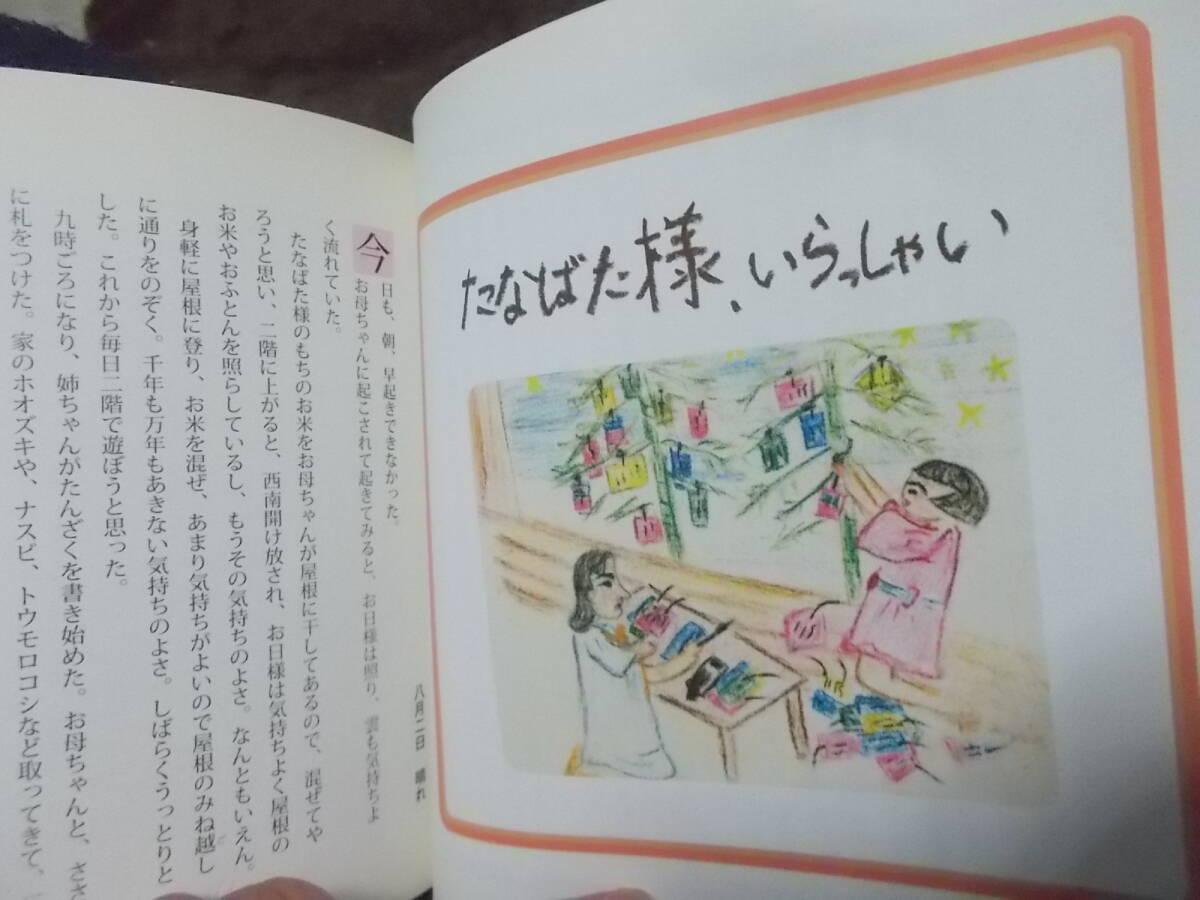 たなばた様、いらっしゃい
八月二日 晴れ
今日も、朝、早起きできなかった。
お母ちゃんに起こされて起きてみると、お日様は照り、雲も気持ちよ
く流れていた。
たなばた様のもちのお米をお母ちゃんが屋根に干してあるので、混ぜてや
ろうと思い、二階に上がると、西南開け放され、お日様は気持ちよく屋根の
お米やおふとんを照らしているし、もうその気持ちのよさ。なんともいえん。
身軽に屋根に登り、お米を混ぜ、あまり気持ちがよいので屋根のみね越し
に通りをのぞく。千年も万年もあきない気持ちのよさ。しばらくうっとりと
した。これから毎日二階で遊ぼうと思った。
九時ごろになり、姉ちゃんがたんざくを書き始めた。お母ちゃんと、ささ
に札をつけた。家のホオズキや、ナスビ、トウモロコシなど取ってきて、